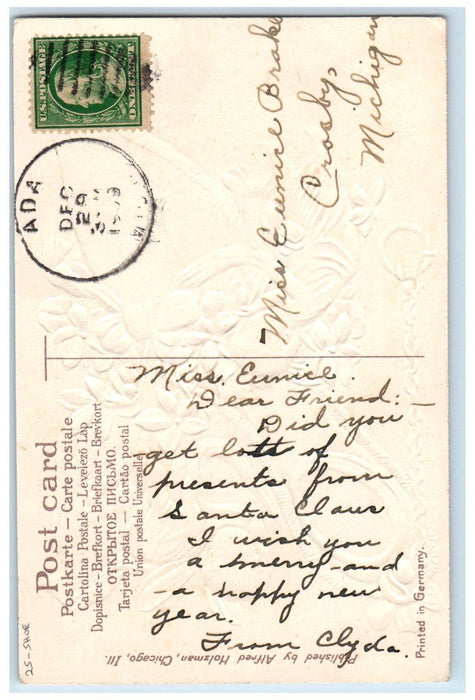 U.S. POSTAGE
ONE CENT
ADA
DEC
29
1909
Miss Eunice Brake
Crosby,
Michigan
Miss. Eunice.
Dear Friend:-
Did you
get lots of
presents from
Santa Claus
I wish you
a merry-and
-a happy new
year.
From Clyda.
Post card
Postkarte — Carte postale
Cartolina Postale — Levelező Lap
Dopisnice — Brefkort — Briefkaart — Brevkort
ОТКРЫТОЕ ПИСЬМО.
Tarjeta postal — Cartão postal
Union postale Universelle
Published by Alfred Holzman, Chicago, Ill.
Printed in Germany.